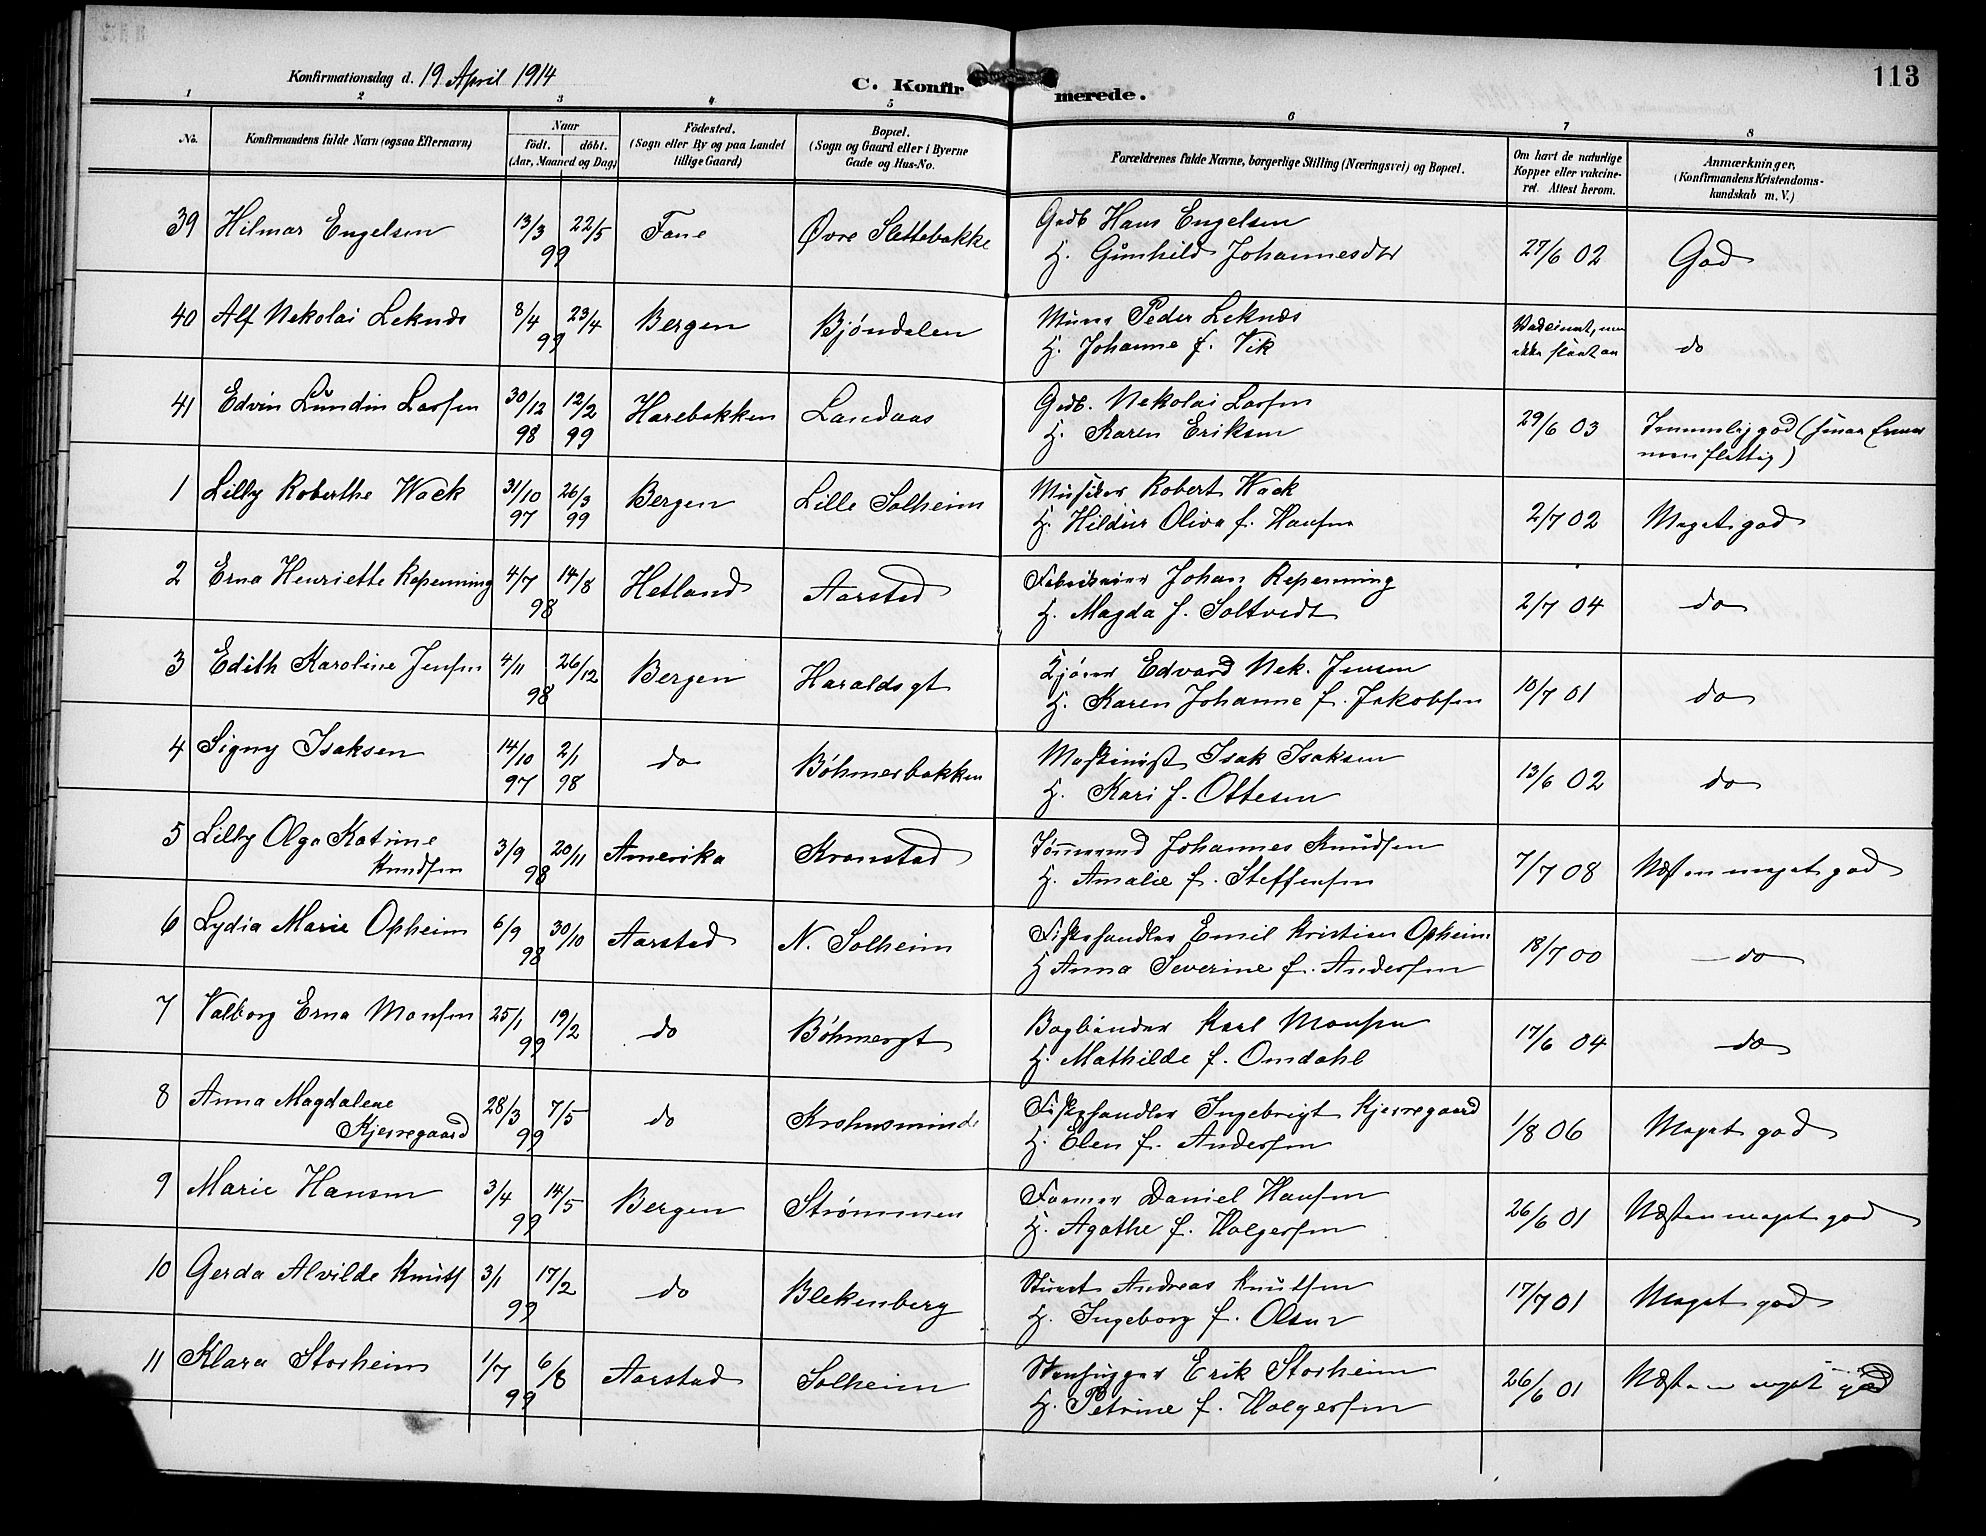 113
Konfirmationsdag d. 19 April 1914
C. Konfirmerede.
1 2 3 4 5 6 7 8
No. | Konfirmandens fulde Navn (ogsaa Efternavn) | Naar födt. döbt. (Aar, Maaned og Dag) | Födested. (Sogn eller By og paa Landet tillige Gaard) | Bopæl. (Sogn og Gaard eller i Byerne Gade og Hus-No. | Forældrenes fulde Navne, borgerlige Stilling (Næringsvei) og Bopæl. | Om havt de naturlige Kopper eller vakcineret. Attest herom. | Anmærkninger, (Konfirmandens Kristendomskundskab m. V.)
39 Hilmar Engelsen 13/3 22/5 99 Fane Øvre Slettebakke Gadb Hans Engelsen
H. Gunhild Johannesdtr 27/6 02 God
40 Alf Nekolai Leknes 8/4 23/4 99 Bergen Bjöndalen Murer Peder Leknes
H. Johanne f. Vik Vakcinert, men ikke slaat an do
41 Edvin Lundin Larsen 30/12 98 12/2 99 Harebakken Landaas Gadb. Nekolai Larsen
H. Karen Eriksen 29/6 03 Temmelig god (
men flittig)
1 Lilly Roberthe Wack 31/10 97 26/3 99 Bergen Lille Solheim Musiker Robert Wack
H. Hildur Oliva f. Hansen 2/7 02 Meget god
2 Erna Henriette Repenning 4/7 14/8 98 Hetland Aarstad Johan Repenning
H. Magda f. Soltvedt 2/7 04 do
3 Edith Karoline Jensen 4/11 26/12 98 Bergen Haraldsgt Edvard Nek. Jensen
H. Karen Johanne f. Jakobsen 10/7 01 do
4 Signy Isaksen 14/10 97 2/1 98 do Böhmerbakken Maskinist Isak Isaksen
H. Kari f. Ottesen 13/6 02 do
5 Lilly Olga Katrine
Knudsen 3/9 20/11 98 Amerika Kronstad Tömmermd Johannes Knudsen
H. Amalie f. Steffensen 7/7 08 Næsten meget god
6 Lydia Marie Opheim 6/9 30/10 98 Aarstad N. Solheim Fiskehandler Emil Kristian Opheim
H Anna Severine f. Andersen 18/7 00 do
7 Valborg Erna Monsen 25/1 19/2 99 do Böhmergt Bogbinder Karl Monsen
H. Mathilde f. Omdahl 17/6 04 do
8 Anna Magdalene
Kjerregaard 28/3 7/5 99 do Krohnsminde Fiskehandler Ingebrigt Kjerregaard
H. Elen f. Andersen 1/8 06 Meget god
9 Marie Hansen 3/4 14/5 99 Bergen Strömmen Former Daniel Hansen
H. Agathe f. Holgersen 26/6 01 Næsten meget god
10 Gerda Alvilde Knuts 3/1 17/2 99 do Blekenberg Stuert Andreas Knutsen
H. Ingeborg f. Olsen 17/7 01 Meget god
11 Klara Storheim 1/7 6/8 99 Aarstad Solheim Stenhugger Erik Storheim
H. Petrine f. Holgersen 26/6 01 Næsten meget god